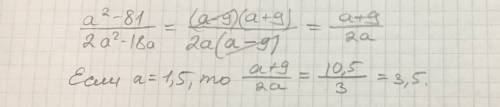 a²-81 / 2a²-18a = (a-9)(a+9) / 2a(a-9) = a+9 / 2a
Если a=1,5, то a+9 / 2a = 10,5 / 3 = 3,5.